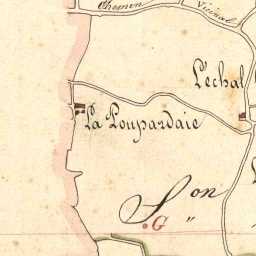 Chemin Vicinal
L'echal
La Poupardaie
Son
G "